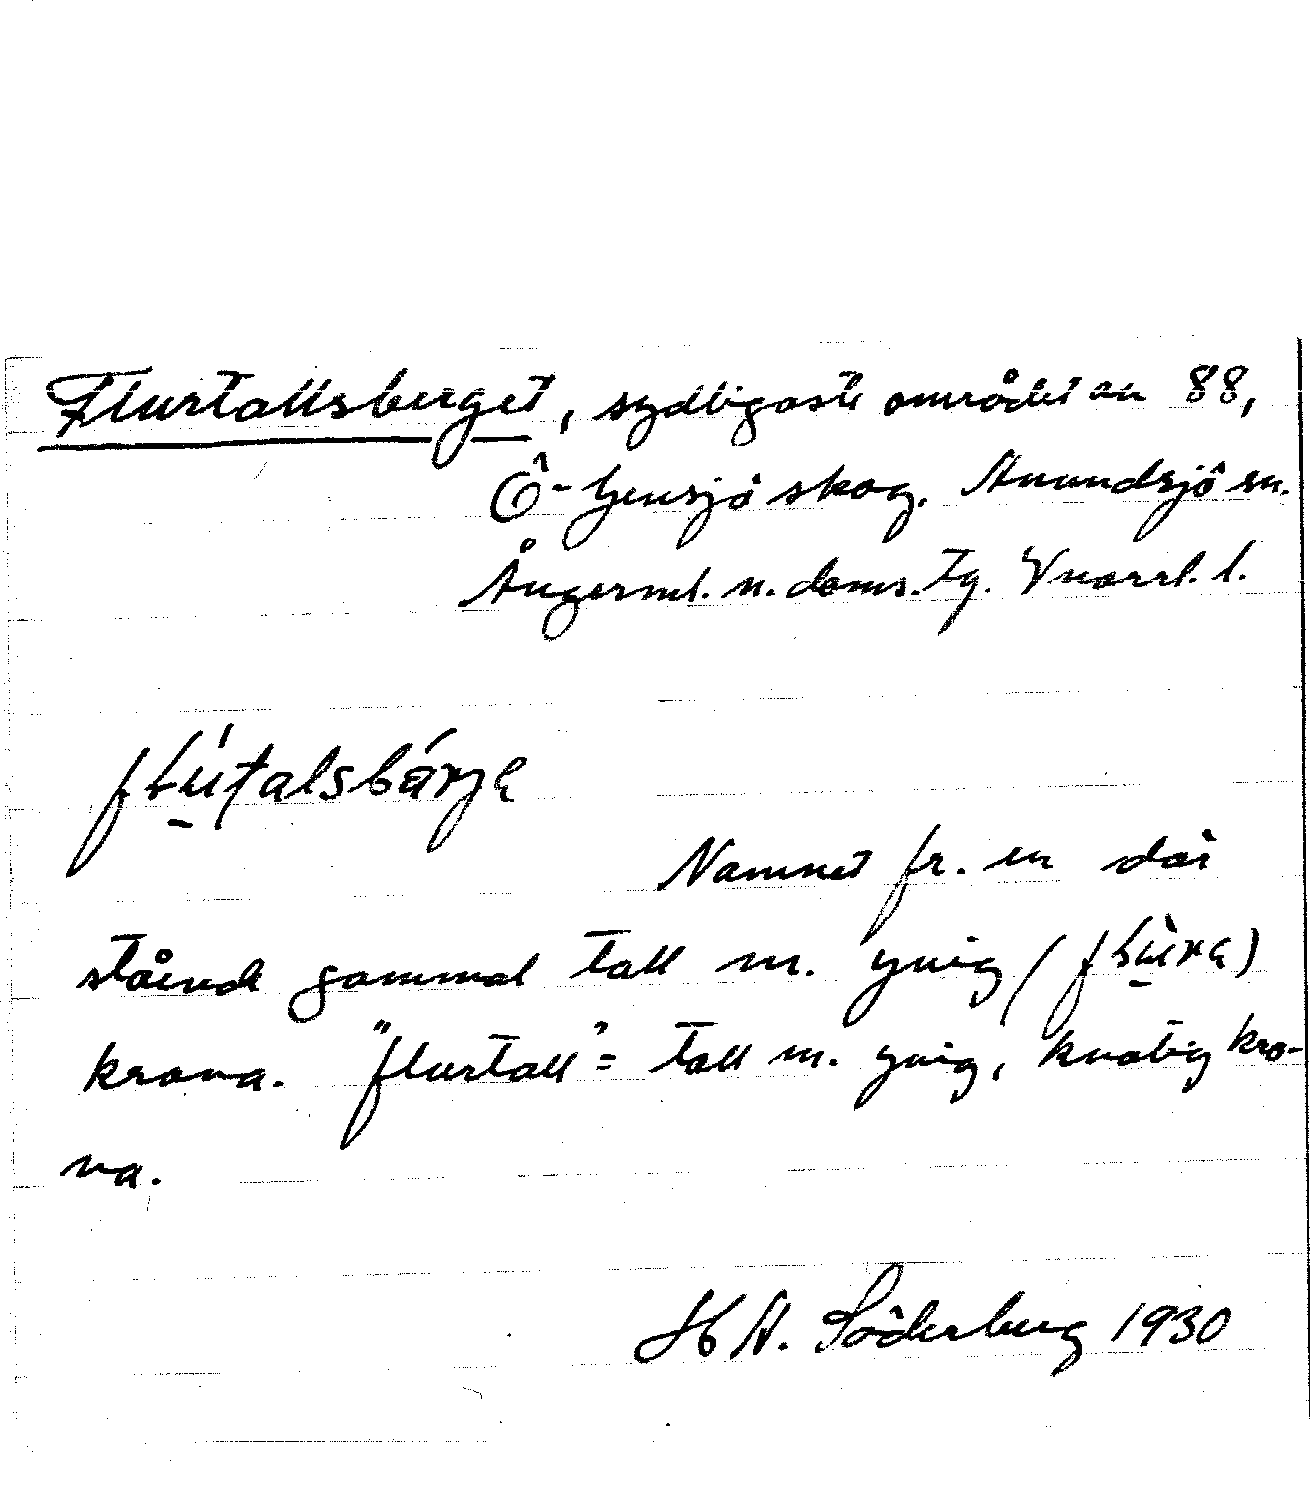 Flurtallsberget, sydligaste området av 88,
Ö-Gensjö skog. Anundsjö sn.
Ångerml. n. doms. tg. Vnorrl. l.
fłu̱´ʈalsbárje
Namnet fr. en där
stående gammal tall m. yvig (fłù̱ra)
krona. "flurtall" = tall m. yvig, kvatig kro-
na.
H A. Söderberg 1930